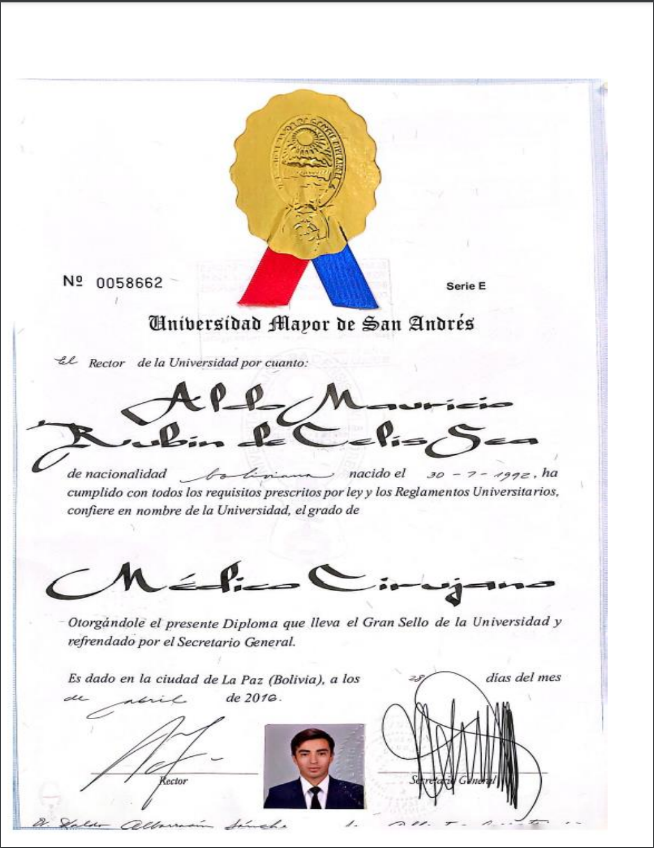 Nº 0058662
Serie E
Universidad Mayor de San Andrés
El Rector de la Universidad por cuanto:
Aldo Mauricio
Rubin de Celis Sea
de nacionalidad boliviana nacido el 30-7-1992, ha
cumplido con todos los requisitos prescritos por ley y los Reglamentos Universitarios,
confiere en nombre de la Universidad, el grado de
Médico Cirujano
Otorgándole el presente Diploma que lleva el Gran Sello de la Universidad y
refrendado por el Secretario General.
Es dado en la ciudad de La Paz (Bolivia), a los 28 días del mes
de abril de 2016.
Rector
Secretario General
Waldo Albarracín Sánchez